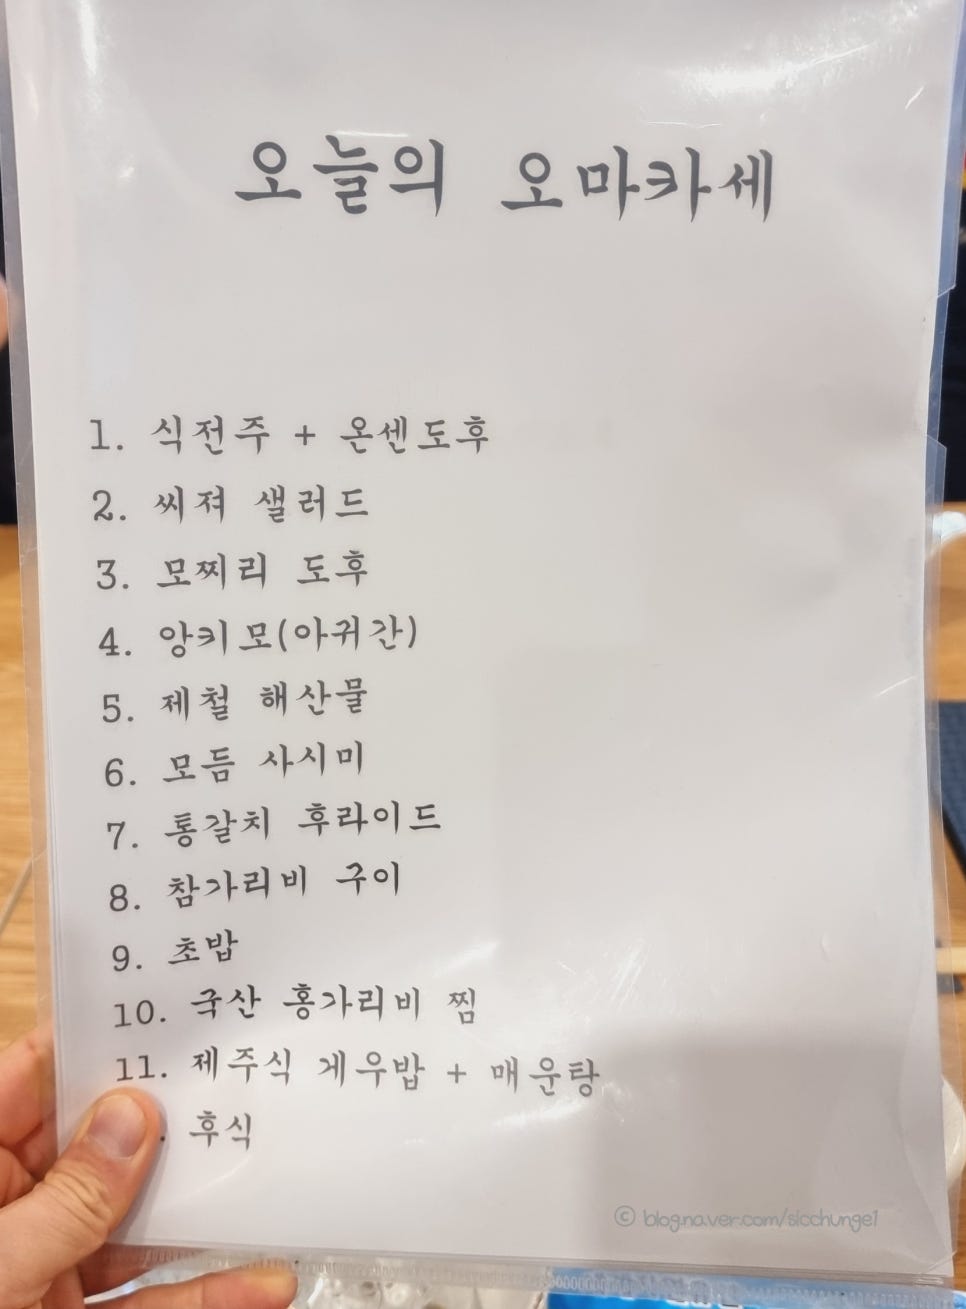 오늘의 오마카세
1. 식전주 + 온센도후
2. 씨져 샐러드
3. 모찌리 도후
4. 앙키모(아귀간)
5. 제철 해산물
6. 모듬 사시미
7. 통갈치 후라이드
8. 참가리비 구이
9. 초밥
10. 국산 홍가리비 찜
11. 제주식 게우밥 + 매운탕
. 후식
© blog.naver.com/sicchunge1